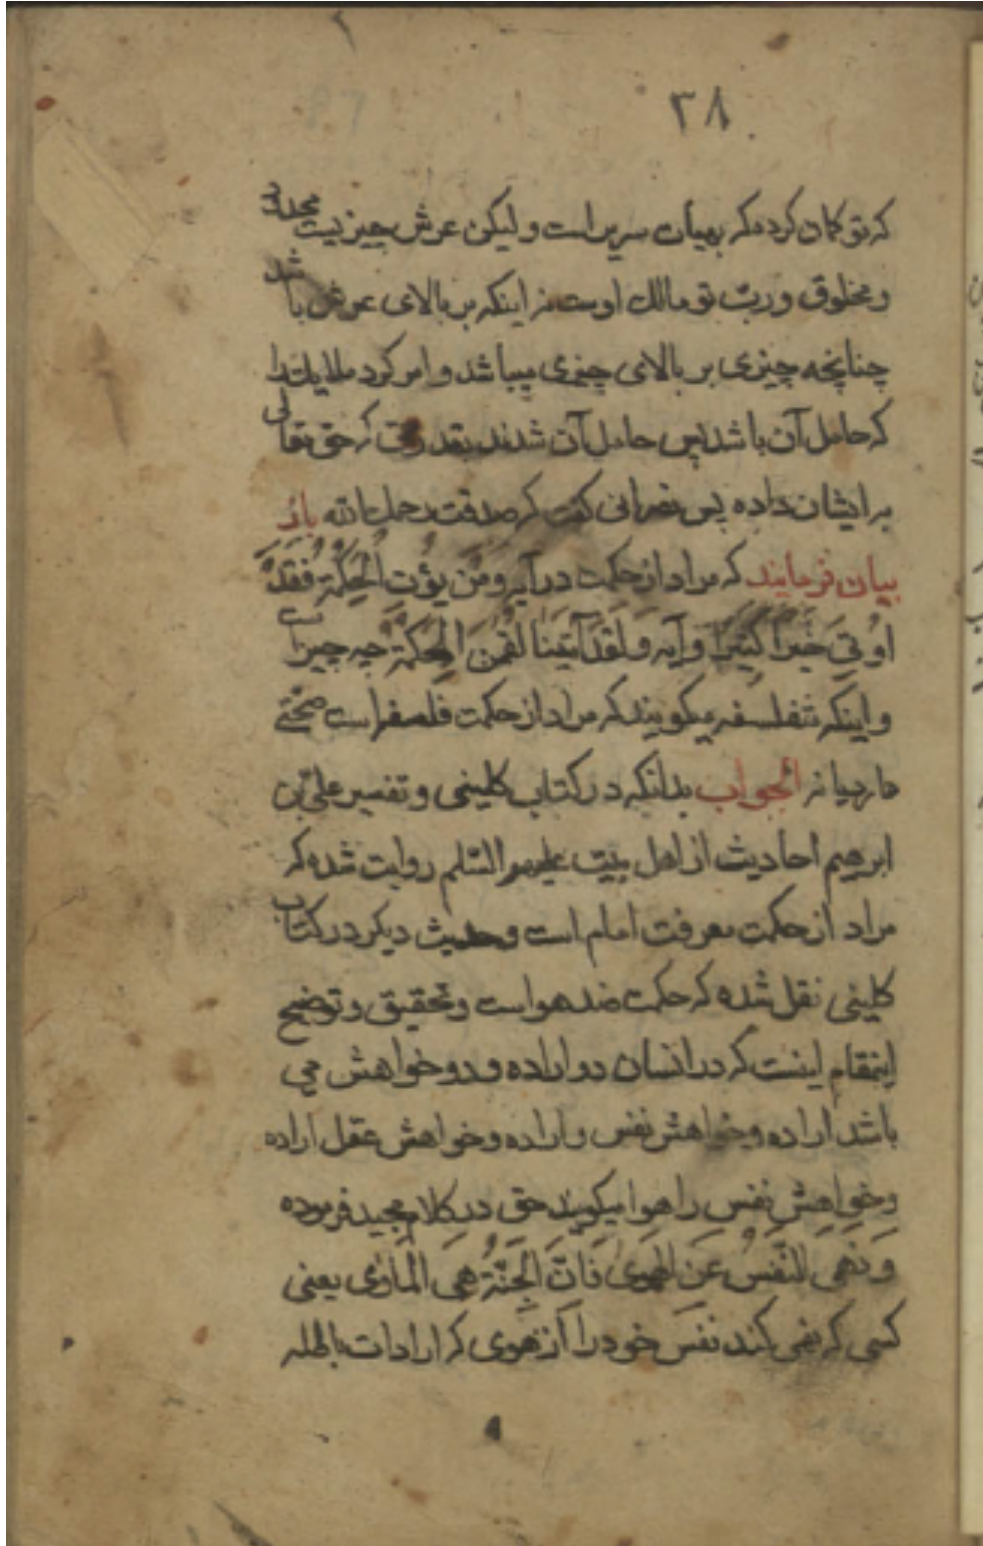 ۳۸
که تو کمان کرده که بهیأت سریر است ولیکن عرش چیزیست محدث
و مخلوق و ربّ تو مالک اوست نه اینکه بر بالای عرش باشد
چنانچه چیزی بر بالای چیزی میباشد و امر کرد ملایک را
که حامل آن باشند پس حامل آن شدند بقدرتی که حق تعالی
بر ایشان داده پس نصرانی کفت که صدقت رحمك الله باز
بیان فرمایند که مراد از حکمت در آیه وَمَن یُؤْتَ الْحِکْمَةَ فَقَدْ
اُوتِیَ خَیْراً کَثِیراً و آیه وَلَقَدْ آتَیْنَا لُقْمٰنَ الْحِکْمَةَ چه چیز است
و اینکه متفلسفه میکویند که مراد از حکمت فلسفه است صحّتی
دارد یا نه الجواب بدانکه در کتاب کلینی و تفسیر علیّ بن
ابرهیم احادیث از اهل بیت علیهم السّلم روایت شده که
مراد از حکمت معرفت امام است و حدیث دیکر در کتاب
کلینی نقل شده که حکمت ضد هواست و تحقیق و توضیح
اینمقام اینست که در انسان دو اراده و دو خواهش می
باشد اراده و خواهش نفس و اراده و خواهش عقل اراده
و خواهش نفس را هوا میکویند حق در کلام مجید فرموده
وَ نَهَی النَّفْسَ عَنِ الْهَوٰی فَاِنَّ الْجَنَّةَ هِیَ الْمَأوٰی یعنی
کسی که نهی کند نفس خود را از هوی که ارادات باطله